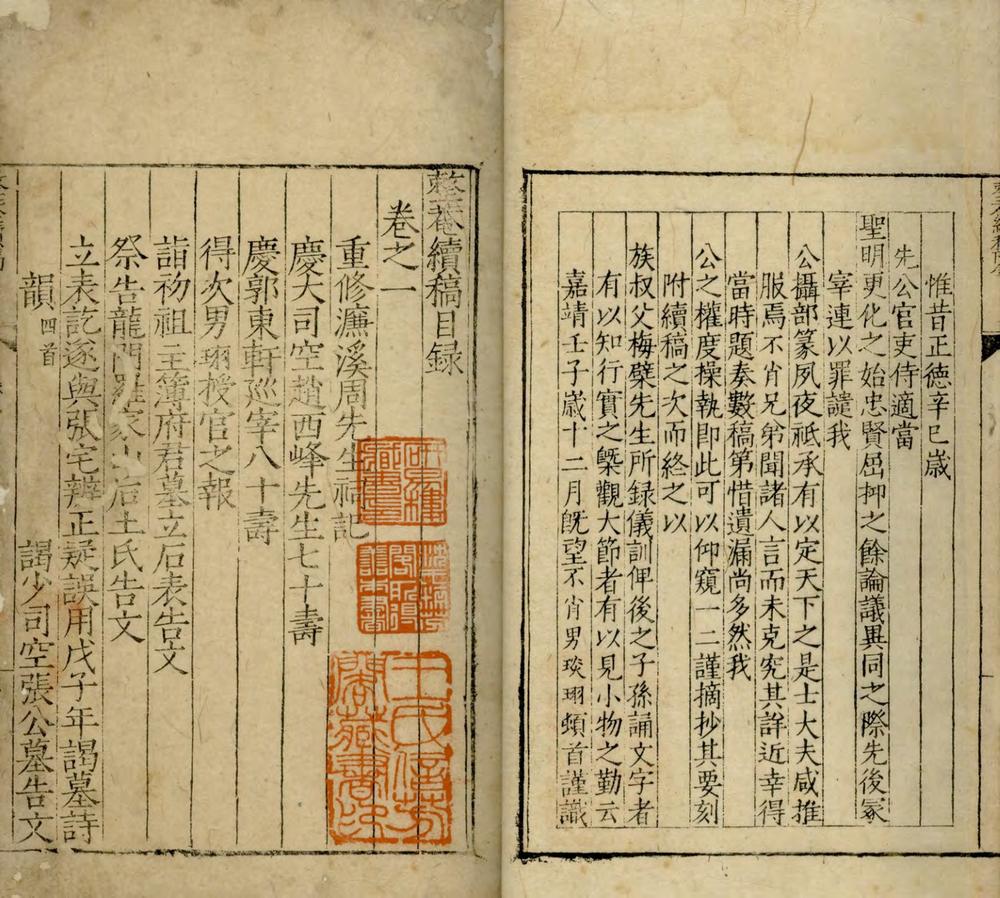 惟昔正德辛巳歲
先公官吏侍適當
聖明更化之始忠賢屈抑之餘論議異同之際先後冢
宰連以罪譴我
公攝部篆夙夜祗承有以定天下之是士大夫咸推
服焉不肖兄弟聞諸人言而未克究其詳近幸得
當時題奏數稿第惜遺漏尚多然我
公之權度操執即此可以仰窺一二謹摘抄其要刻
附續稿之次而終之以
族叔父梅檗先生所録儀訓俾後之子孫誦文字者
有以知行實之槩觀大節者有以見小物之勤云
嘉靖壬子歲十二月旣望不肖男琰珝頓首謹識
整菴續稿目録
卷之一
重修濂溪周先生祠記
慶大司空趙西峰先生七十壽
慶郭東軒廵宰八十壽
得次男珝授官之報
詣初祖主簿府君墓立石表告文
祭告龍門羅家山后土氏告文
立表訖遂與張宅辨正疑誤用戊子年謁墓詩
韻四首 謁少司空張公墓告文